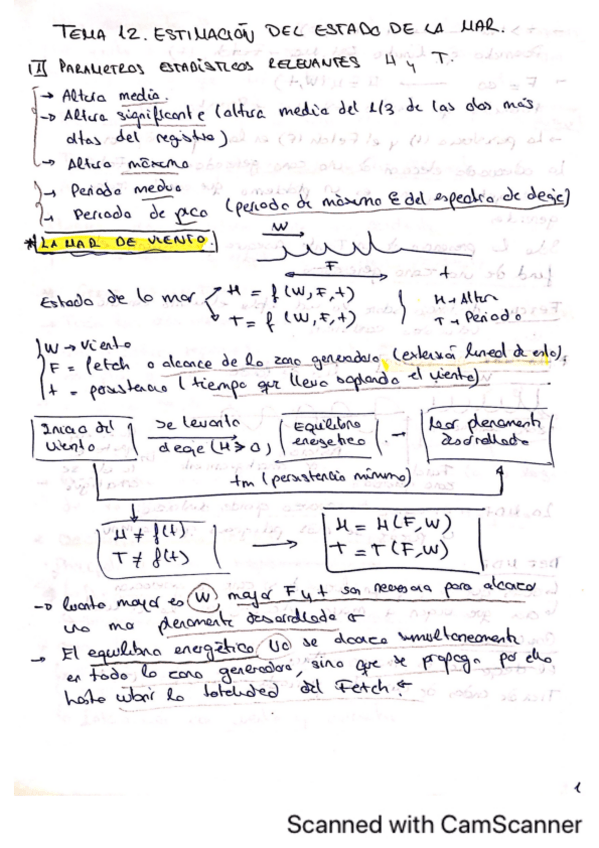 TEMA 12. ESTIMACIÓN DEL ESTADO DE LA MAR.
1 PARAMETROS ESTADISTICOS RELEVANTES H y T.
→ Altura media.
→ Altura significante (altura media del 1/3 de las olas más
altas del registro)
→ Altura máxima
→ Periodo medio
→ Periodo de pico (periodo de máxima E del espectro de oleaje)
* LA MAR DE VIENTO.
W
F t
Estado de la mar. H = f (W, F, t) H → Altura
T = f (W, F, t) T → Periodo
W → Viento
F = fetch o alcance de la zona generadora (extensión lineal de esta).
t = persistencia (tiempo que lleva soplando el viento)
Inicio del Viento Se levanta oleaje (H>0) Equilibrio energetico → Mar plenamente desarrollada
tm (persistencia mínima)
H ≠ f(t) → H = H(F, W)
T ≠ f(t) T = T(F, W)
→ Cuanto mayor es W, mayor F y t son necesaria para alcanzar
una mar plenamente desarrollada
→ El equilibrio energético NO se alcanza simultaneamente
en toda la zona generadora, sino que se propaga por ella
hasta cubrir la totalidad del Fetch.
1
Scanned with CamScanner